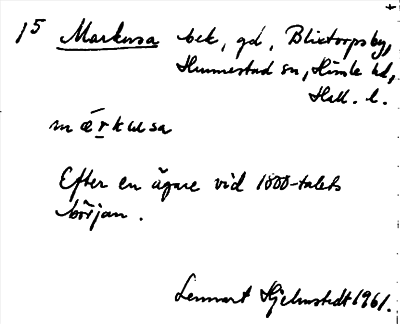 15 Markusa bek, gd, Blixtorpsby,
Hunnestad sn, Himle hd,
Hall. l.
mærkusa
Efter en ägare vid 1800-talets
början.
Lennart Hjelmstedt 1961.